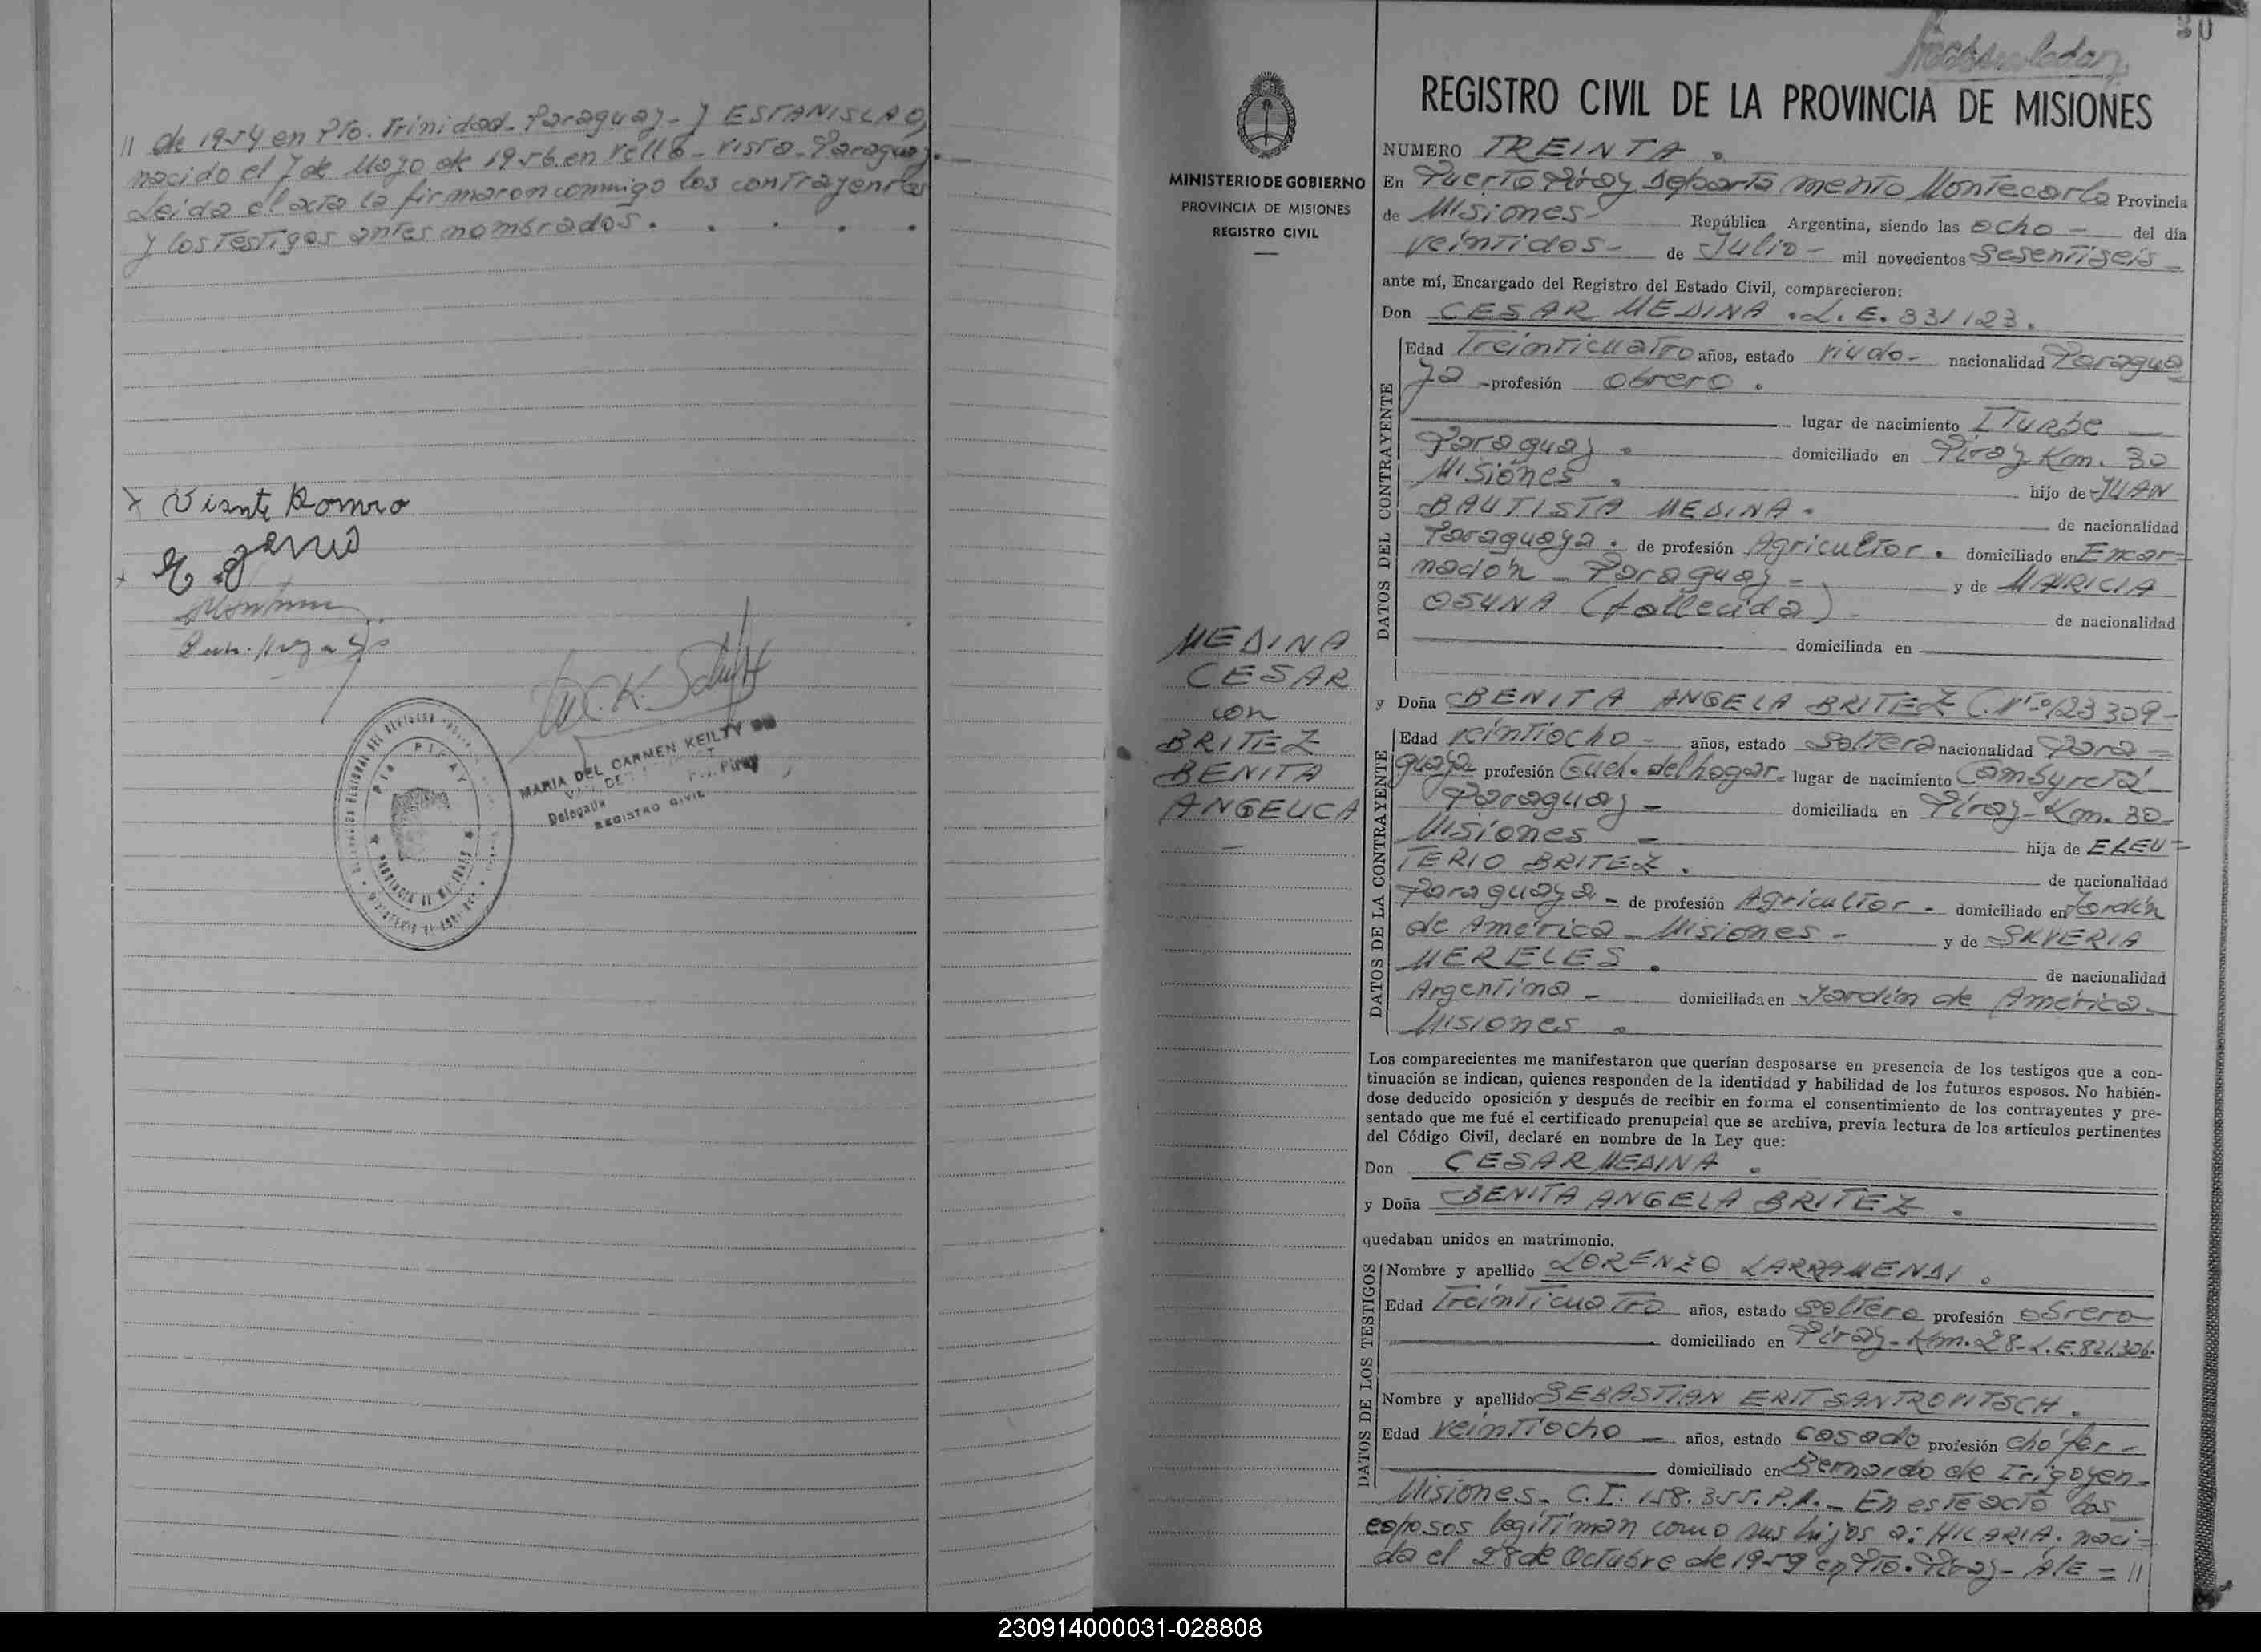 // de 1954 en Pto. Trinidad - Paraguay - y ESTANISLAO,
nacido el 7 de Mayo de 1956 en Vella - Vista - Paraguay. -
Leida el acta la firmaron conmigo los contrayentes
y los testigos antes nombrados.
x Visnte Romro
x
MARIA DEL CARMEN KEILTY DE
Delegada
REGISTRO CIVIL
PIRAY
PROVINCIA DE MISIONES
30
REGISTRO CIVIL DE LA PROVINCIA DE MISIONES
MINISTERIO DE GOBIERNO
PROVINCIA DE MISIONES
REGISTRO CIVIL
NUMERO TREINTA.
En Puerto Piray Departamento Montecarlo Provincia
de Misiones - República Argentina, siendo las ocho - del día
veintidos - de Julio - mil novecientos sesentiseis -
ante mí, Encargado del Registro del Estado Civil, comparecieron:
Don CESAR MEDINA. L. E. 831123.
DATOS DEL CONTRAYENTE
Edad Treinticuatro años, estado viudo - nacionalidad Paragua
ya - profesión obrero.
lugar de nacimiento ITurbe -
Paraguay. domiciliado en Piray Km. 30
Misiones. hijo de JUAN
BAUTISTA MEDINA. de nacionalidad
Paraguaya. de profesión Agricultor. domiciliado en Encar=
nación - Paraguay - y de MAURICIA
OSUNA (fallecida) - de nacionalidad
domiciliada en
MEDINA
CESAR
con
BRITEZ
BENITA
ANGELICA
y Doña BENITA ANGELA BRITEZ C. Nº 123309 -
DATOS DE LA CONTRAYENTE
Edad veintiocho - años, estado soltera nacionalidad Para=
guaya profesión Queh. del hogar - lugar de nacimiento Cambyretá
Paraguay - domiciliada en Piray - Km. 30 -
Misiones - hija de ELEU=
TERIO BRITEZ. de nacionalidad
Paraguaya - de profesión Agricultor - domiciliado en Jardín
de América - Misiones - y de SILVERIA
MERELES. de nacionalidad
Argentina - domiciliada en Jardín de América -
Misiones.
Los comparecientes me manifestaron que querían desposarse en presencia de los testigos que a con-
tinuación se indican, quienes responden de la identidad y habilidad de los futuros esposos. No habién-
dose deducido oposición y después de recibir en forma el consentimiento de los contrayentes y pre-
sentado que me fué el certificado prenupcial que se archiva, previa lectura de los artículos pertinentes
del Código Civil, declaré en nombre de la Ley que:
Don CESAR MEDINA.
y Doña BENITA ANGELA BRITEZ.
quedaban unidos en matrimonio.
DATOS DE LOS TESTIGOS
Nombre y apellido LORENZO LARRAMENDI.
Edad Treinticuatro años, estado soltero profesión obrero -
domiciliado en Piray - Km. 28 - L. E. 821.306.
Nombre y apellido SEBASTIAN ERIT SANTROVITSCH.
Edad veintiocho - años, estado casado profesión chófer -
domiciliado en Bernardo de Irigoyen -
Misiones - C. I. 158.355. P. M. - En este acto los
esposos legitiman como sus hijos a: HILARIA, naci=
da el 28 de Octubre de 1959 en Pto. Piray - ALE = //
230914000031-028808